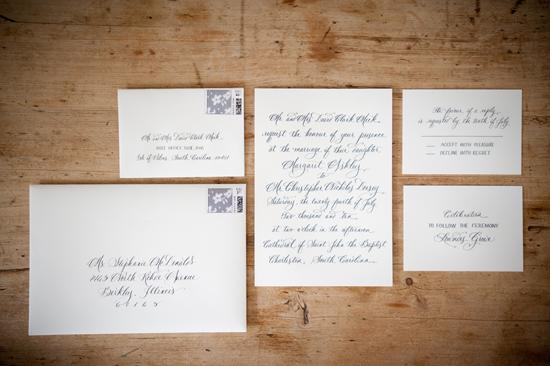 Mr. and Mrs. David Clark Mick
Post Office Box 2196
Isle of Palms, South Carolina 29451
Ms. Stephanie
North Avenue
Berkley, Illinois
Mr. and Mrs. David Clark Mick
request the honour of your presence
at the marriage of their daughter
Margaret Ashley
to
Mr. Christopher Nicholas
Saturday, the twenty fourth of July
two thousand and ten
at two o'clock in the afternoon
Cathedral of Saint John the Baptist
Charleston, South Carolina
The favour of a reply
is requested by the tenth of July
ACCEPT WITH PLEASURE
DECLINE WITH REGRET
Celebration
TO FOLLOW THE CEREMONY
Lowndes Grove